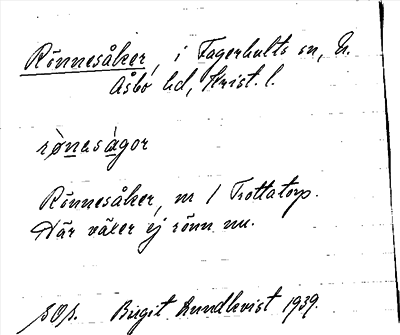 Rönnesåker, i Fagerhults sn, N.
Åsbo hd, Krist. l.
rønesågor
Rönnesåker, nr 1 Trottatorp.
Här växer ej rönn nu.
Birgit Lundkvist 1939.